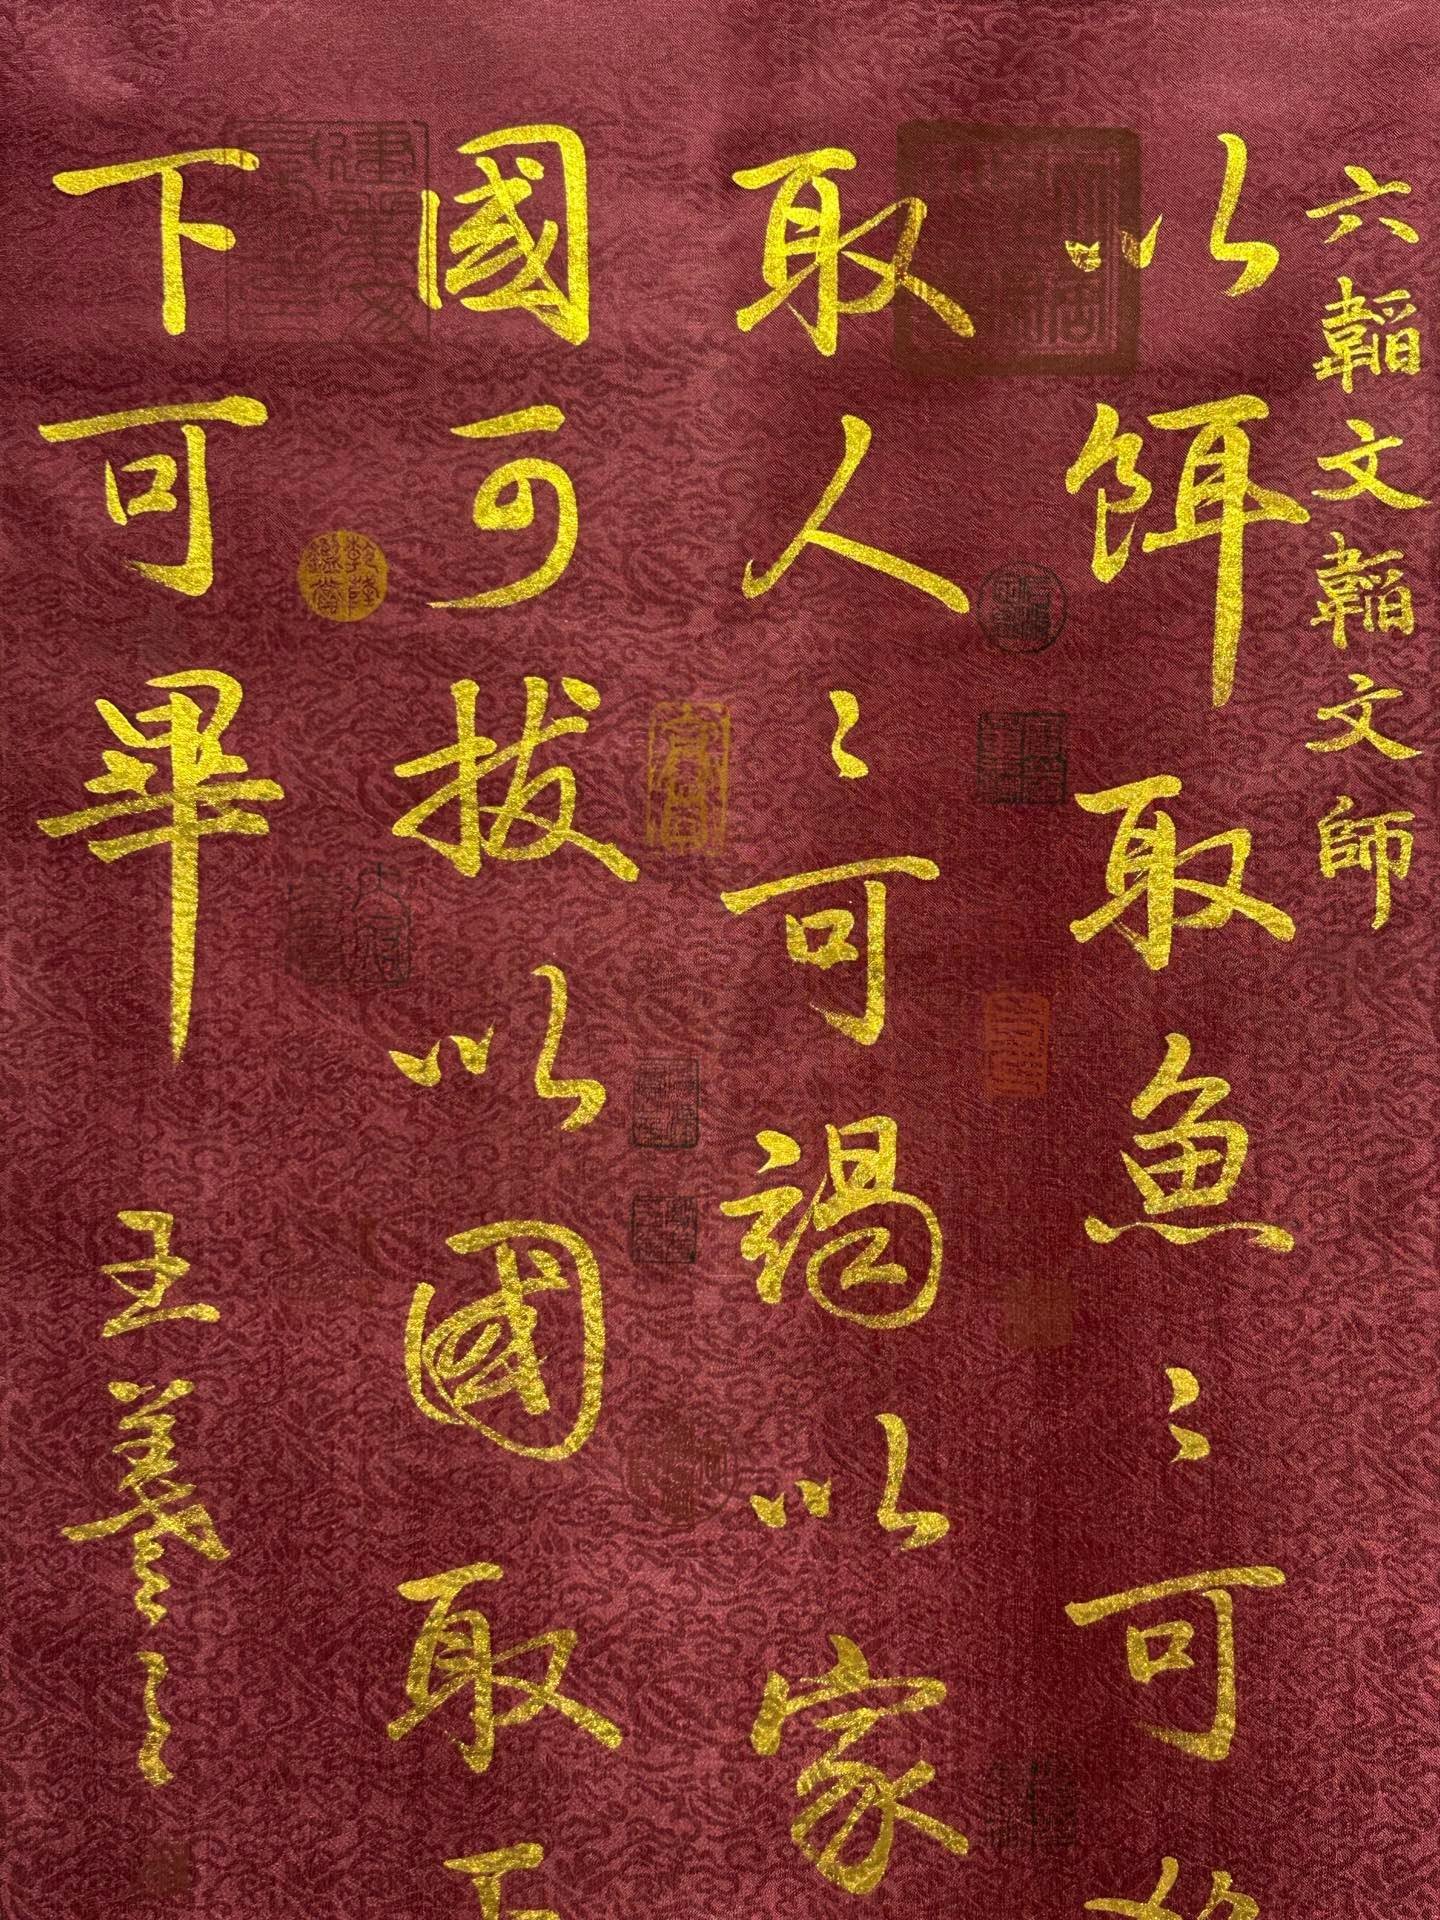 六韜文韜文師
以餌取魚〻可
取人〻可竭以家
國可拔以國取
下可畢
王羲之
乾隆鑑賞